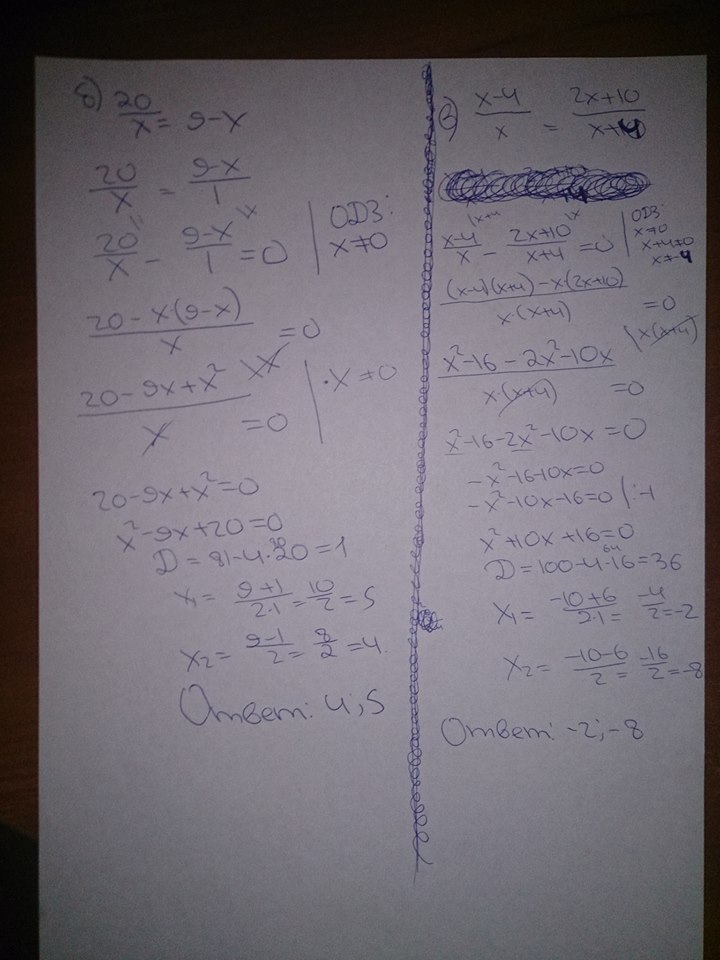 б) 20/x = 9-x
20/x = 9-x/1
20/x - 9-x/1 = 0 | ОДЗ: x≠0
20-x(9-x)/x = 0
20-9x+x²/x = 0 | ·x≠0
20-9x+x²=0
x²-9x+20=0
D=81-4·20=1
x₁= 9+1/2·1 = 10/2 =5
x₂= 9-1/2 = 8/2 =4
Ответ: 4;5
в) x-4/x = 2x+10/x+4
x-4/x - 2x+10/x+4 =0 | ОДЗ: x≠0 x+4≠0 x≠-4
(x-4)(x+4)-x·(2x+10)/x·(x+4) =0
x²-16-2x²-10x/x·(x+4) =0 |x(x+4)
x²-16-2x²-10x=0
-x²-16-10x=0
-x²-10x-16=0 |:-1
x²+10x+16=0
D=100-4·16=36
x₁= -10+6/2·1 = -4/2 =-2
x₂= -10-6/2 = -16/2 =-8
Ответ: -2;-8